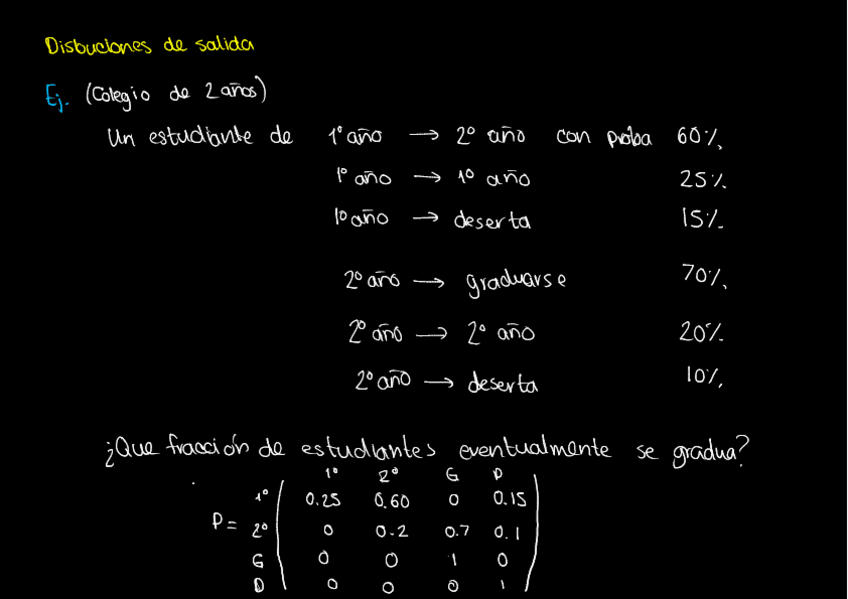 Disbuciones de salida
Ej. (Colegio de 2 años)
Un estudiante de 1º año → 2º año con proba 60%
1º año → 1º año 25%
1º año → deserta 15%
2º año → graduarse 70%
2º año → 2º año 20%
2º año → deserta 10%
¿Que fracción de estudiantes eventualmente se gradua?
1º 2º G D
1º 0.25 0.60 0 0.15
P = 2º 0 0.2 0.7 0.1
G 0 0 1 0
D 0 0 0 1